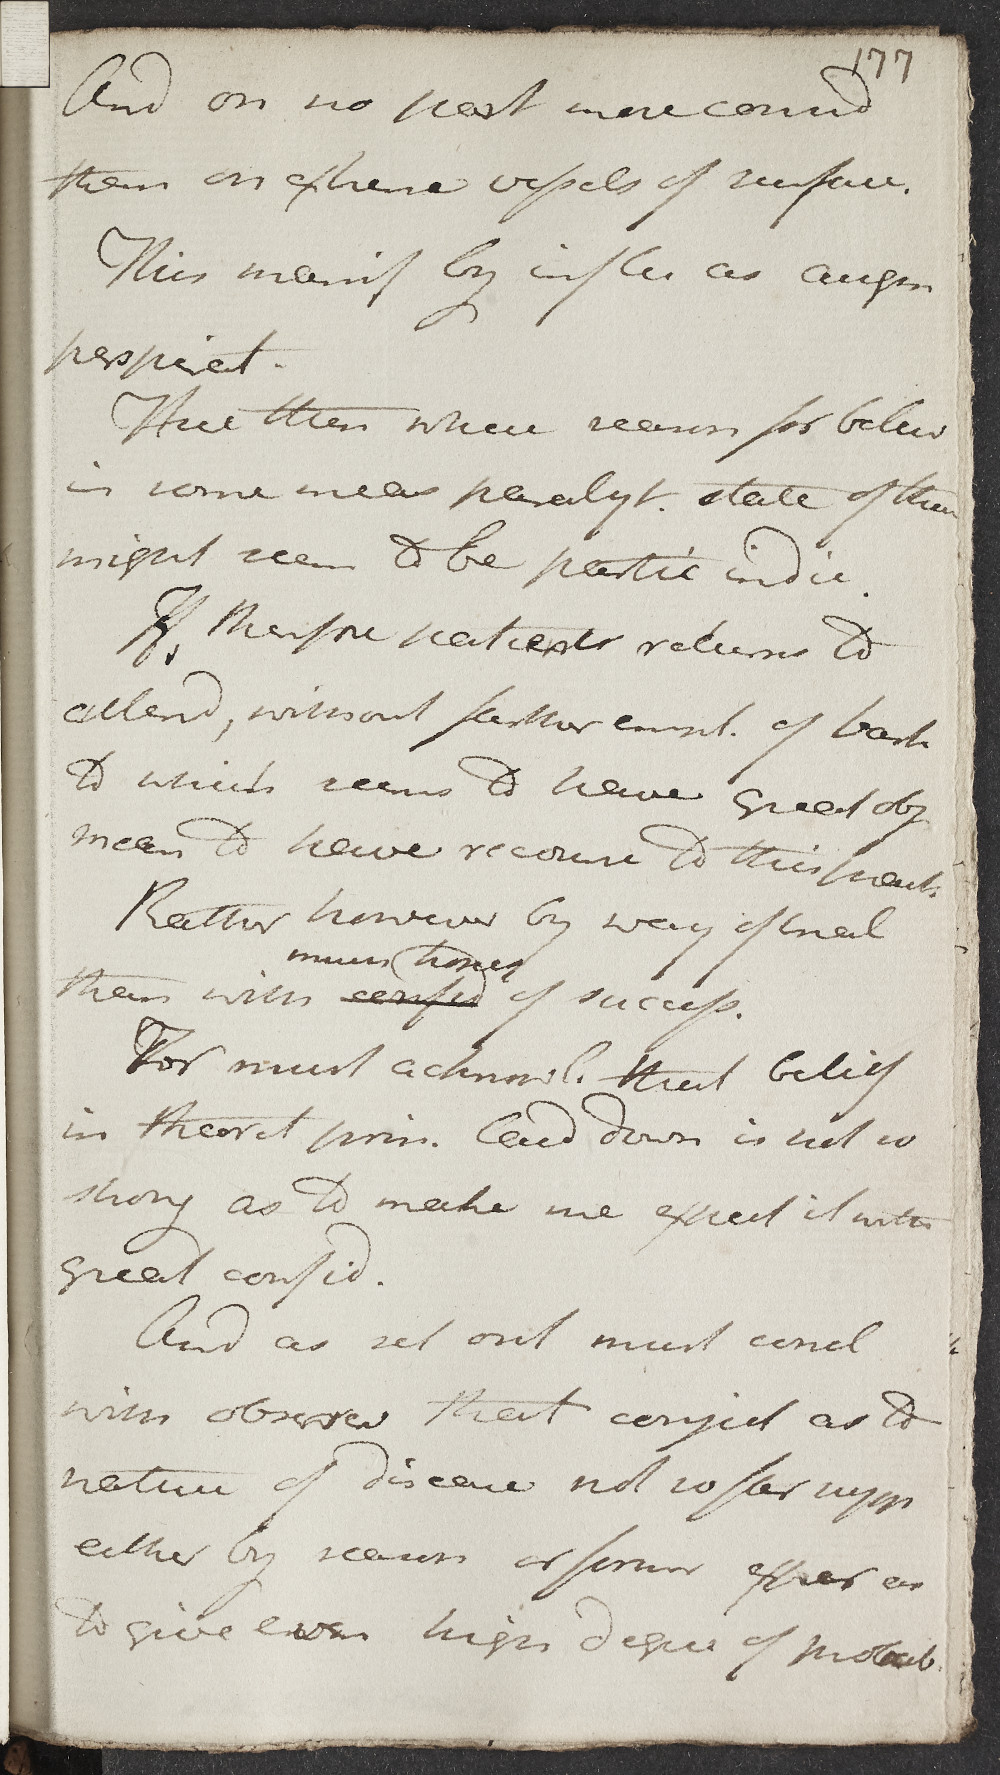 177
And on no part more consid
than on extreme vessels of surface.
This manif by influ as augm
perspirat.
Here then where reason for believ
in some meas paralyt. state of them
might seem to be partic indic.
If therefore patients returns to
attend, without farther empl. of bark
to which seems to have great obj
mean to have recourse to this pract.
Rather however by way of trial
much hopes
than with confid of success.
For must acknowl. that belief
in theoret prin. laid down is not so
strong as to make me expect it with
great confid.
And as set out must concl
with observ that conject as to
nature of disease not so far supp
either by reason or former exper as
to give even high degree of probab.